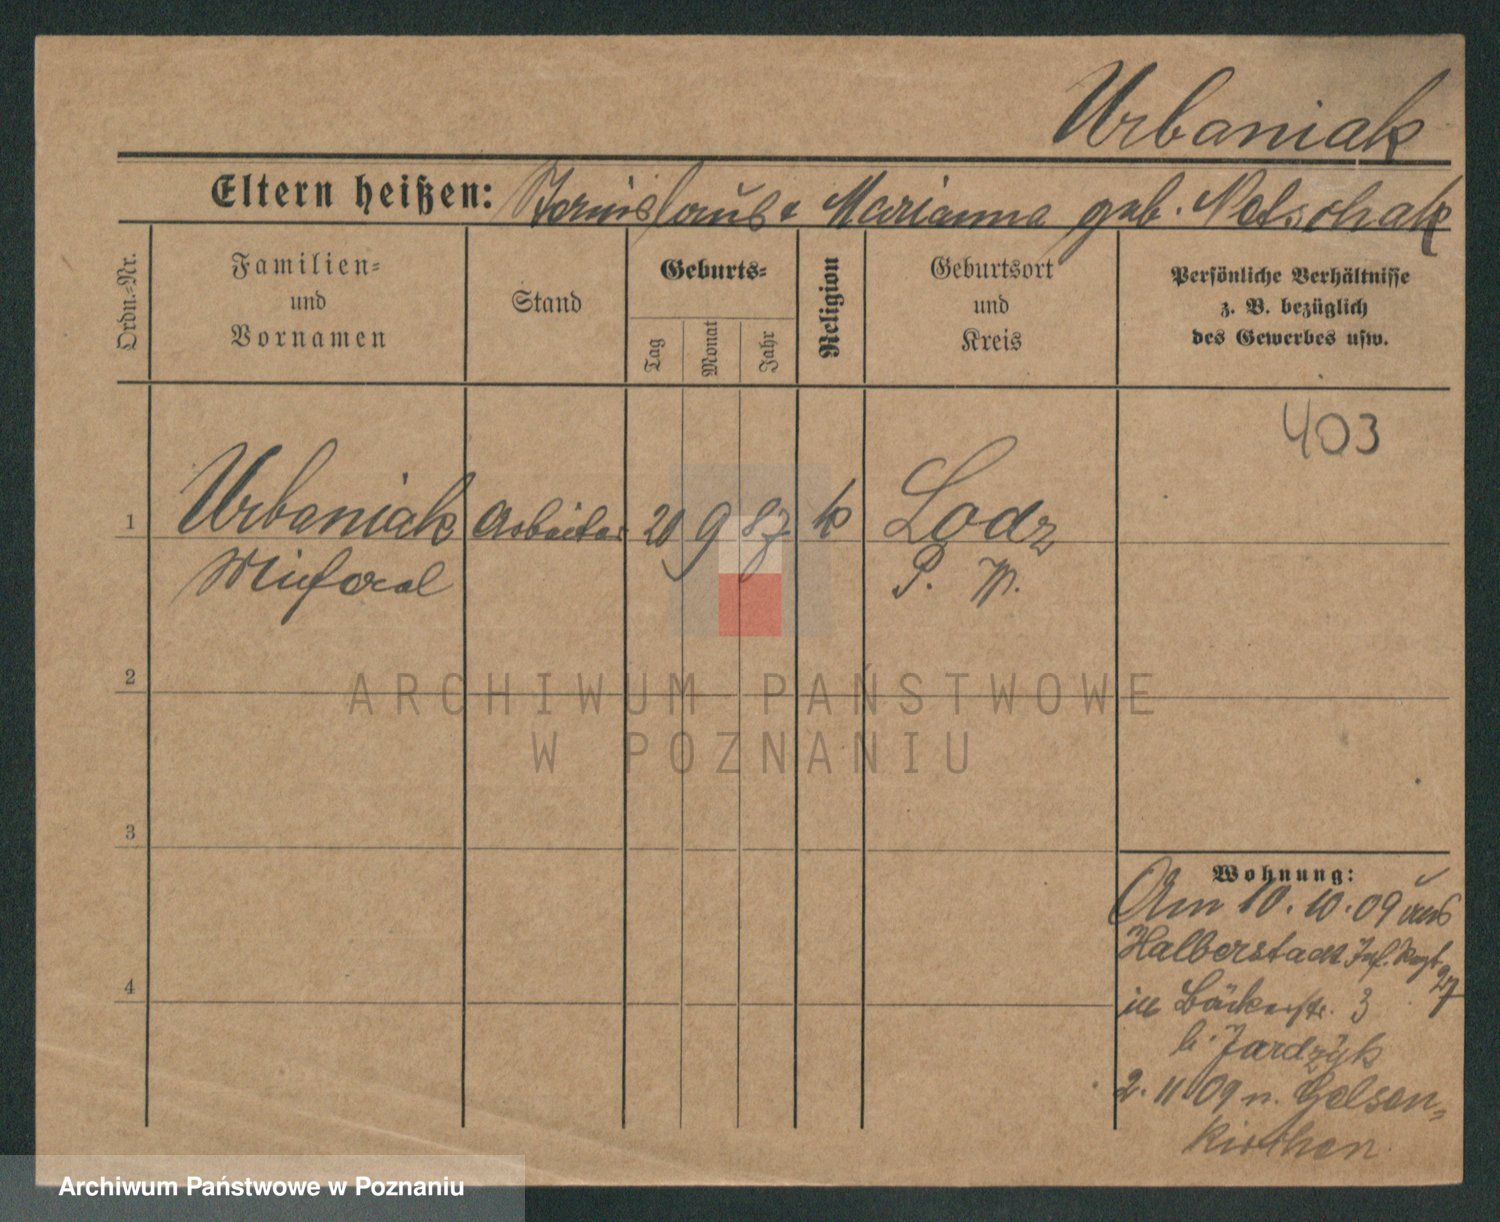 Urbaniak
Eltern heißen: Stanislaus & Marianna geb. Netschak
Ordn.-Nr.
Familien-
und
Vornamen
Stand
Geburts-
Tag
Monat
Jahr
Religion
Geburtsort
und
Kreis
Persönliche Verhältnisse
z. B. bezüglich
des Gewerbes usw.
403
1
Urbaniak Arbeiter 20 9 87 k Lodz
Michael P. W.
2
ARCHIWUM PAŃSTWOWE
W POZNANIU
3
Wohnung:
Am 10. 10. 09 aus
Halberstadt Inf. Regt 27
in Bäckerstr. 3
b. Jardzyk
4
2. 11 09 n. Gelsen-
kirchen.
Archiwum Państwowe w Poznaniu